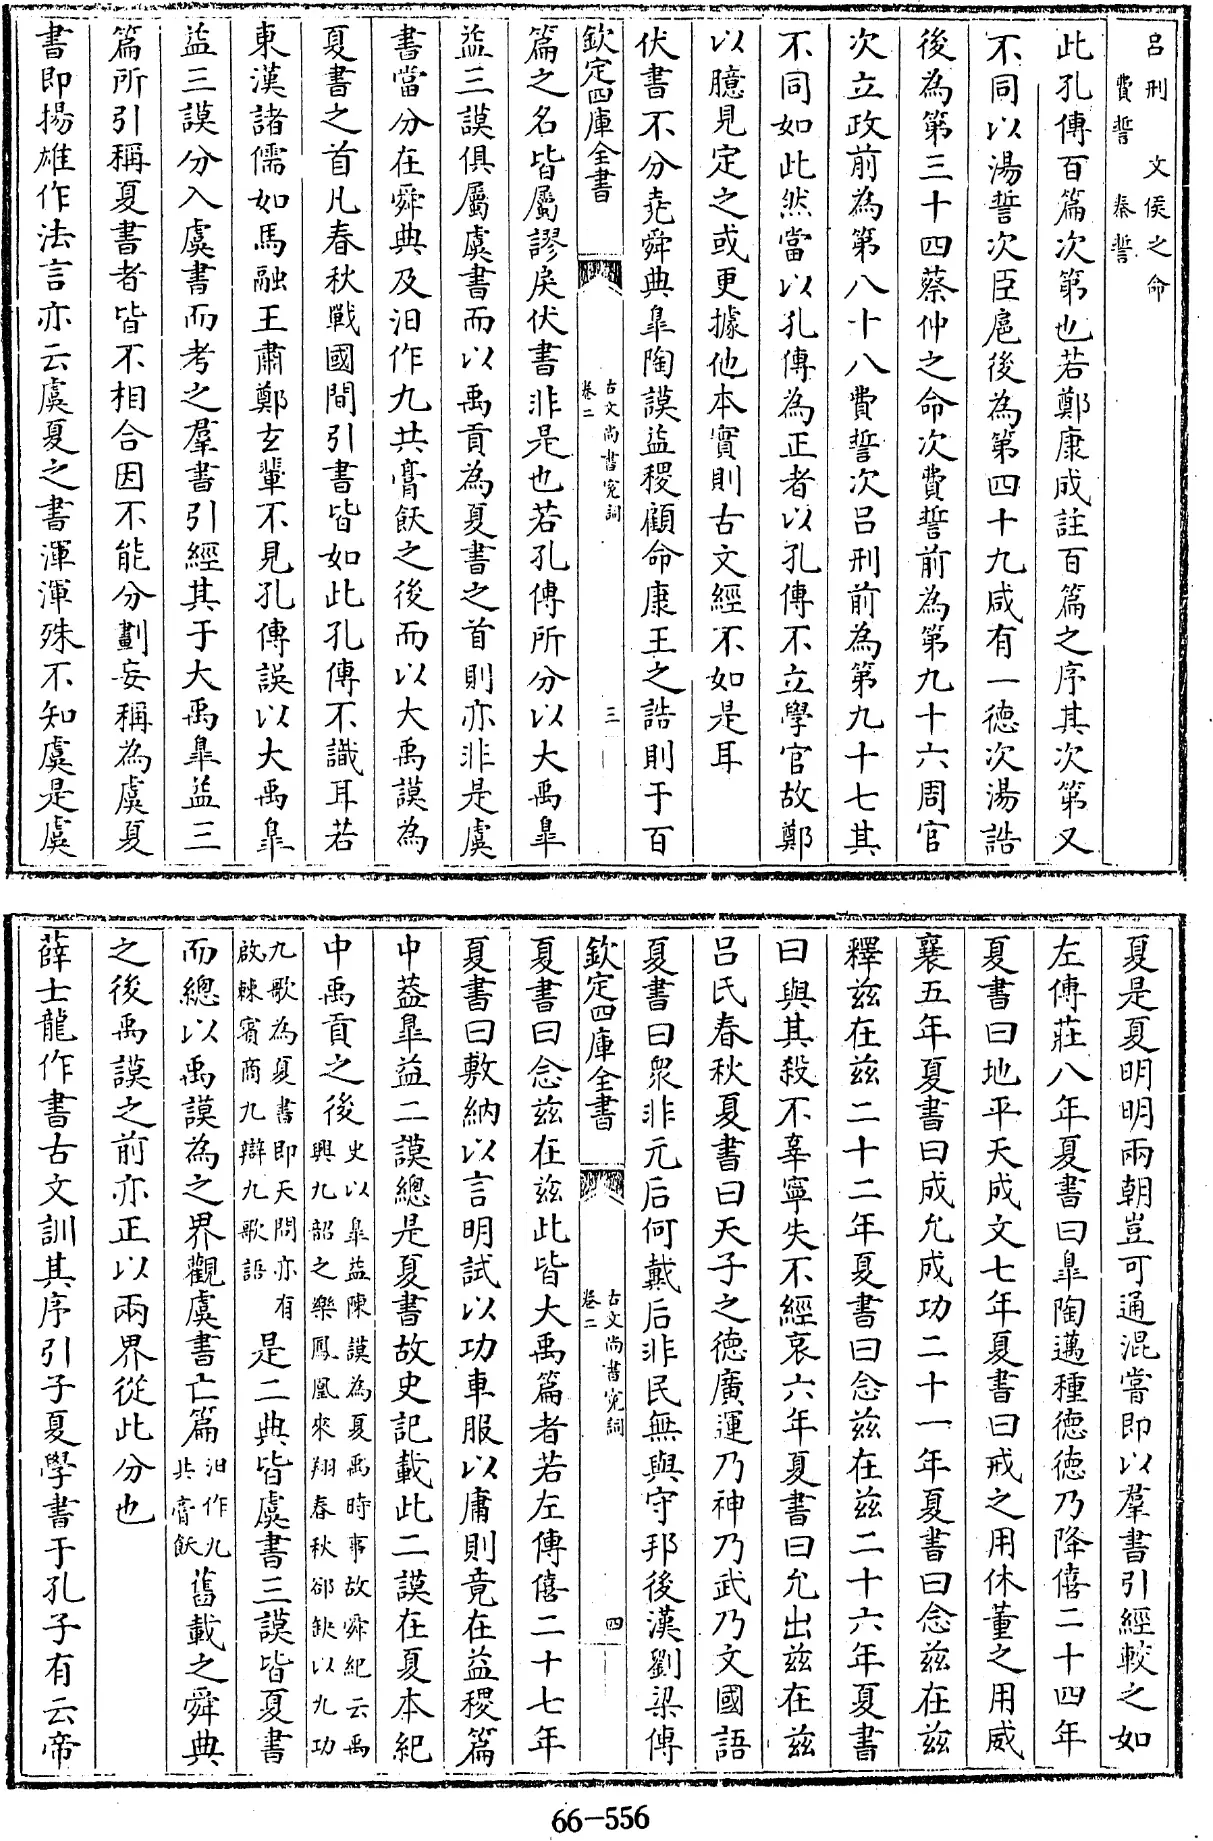 呂刑　文侯之命
費誓　秦誓
此孔傳百篇次第也若鄭康成註百篇之序其次第又
不同以湯誓次臣扈後為第四十九咸有一德次湯誥
後為第三十四蔡仲之命次費誓前為第九十六周官
次立政前為第八十八費誓次呂刑前為第九十七其
不同如此然當以孔傳為正者以孔傳不立學官故鄭
以臆見定之或更據他本實則古文經不如是耳
伏書不分堯舜典臯陶謨益稷顧命康王之誥則于百
欽定四庫全書
古文尚書寃詞
卷二
三
篇之名皆屬謬戾伏書非是也若孔傳所分以大禹臯
益三謨俱屬虞書而以禹貢為夏書之首則亦非是虞
書當分在舜典及汩作九共膏飫之後而以大禹謨為
夏書之首凡春秋戰國間引書皆如此孔傳不識耳若
東漢諸儒如馬融王肅鄭玄輩不見孔傳誤以大禹臯
益三謨分入虞書而考之羣書引經其于大禹臯益三
篇所引稱夏書者皆不相合因不能分劃妄稱為虞夏
書即揚雄作法言亦云虞夏之書渾渾殊不知虞是虞
夏是夏明明兩朝豈可通混嘗即以羣書引經較之如
左傳莊八年夏書曰臯陶邁種德德乃降僖二十四年
夏書曰地平天成文七年夏書曰戒之用休董之用威
襄五年夏書曰成允成功二十一年夏書曰念兹在兹
釋兹在兹二十二年夏書曰念兹在兹二十六年夏書
曰與其殺不辜寧失不經哀六年夏書曰允出兹在兹
呂氏春秋夏書曰天子之德廣運乃神乃武乃文國語
夏書曰衆非元后何戴后非民無與守邦後漢劉梁傳
欽定四庫全書
古文尚書寃詞
卷二
四
夏書曰念兹在兹此皆大禹篇者若左傳僖二十七年
夏書曰敷納以言明試以功車服以庸則竟在益稷篇
中葢臯益二謨總是夏書故史記載此二謨在夏本紀
中禹貢之後史以臯益陳謨為夏禹時事故舜紀云禹
興九韶之樂鳳凰來翔春秋郤缺以九功
九歌為夏書即天問亦有
啟棘賓商九辯九歌語是二典皆虞書三謨皆夏書
而總以禹謨為之界觀虞書亡篇汩作九
共膏飫舊載之舜典
之後禹謨之前亦正以兩界從此分也
薛士龍作書古文訓其序引子夏學書于孔子有云帝
66-556